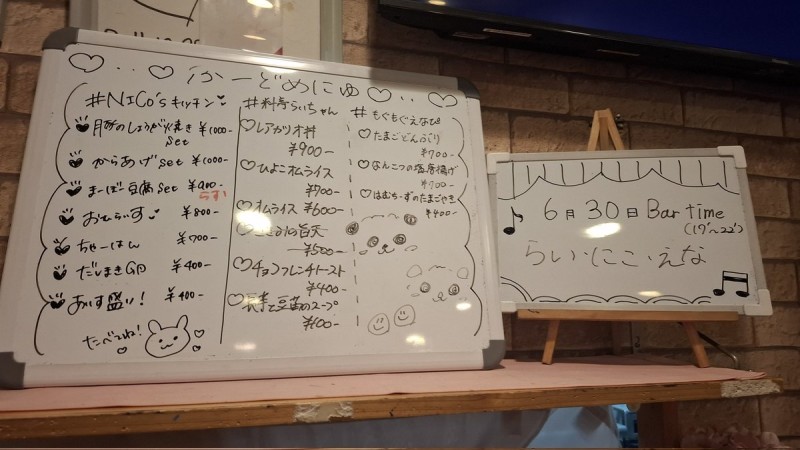 ふーどめにゅ
#NICo'sキッチン
豚のしょうが焼き ¥1000-
set
からあげset ¥1000-
まーぼ豆腐set ¥900-
らすト
おむらいす ¥800-
ちゃーはん ¥700-
だしまき ¥400-
あいす盛り! ¥400-
たべてね!
#料亭らいちゃん
レアカツオ丼
¥900-
ひよこオムライス
¥700-
オムライス ¥600-
¥500-
チョコフレンチトースト
¥400-
と豆腐のスープ
¥600-
#もぐもぐえなぴ
たまごどんぶり
¥700-
なんこつの塩唐揚げ
¥700-
はむちーずのたまごやき
¥400-
6月30日 Bar time
(17~22)
らい・にこ・えな